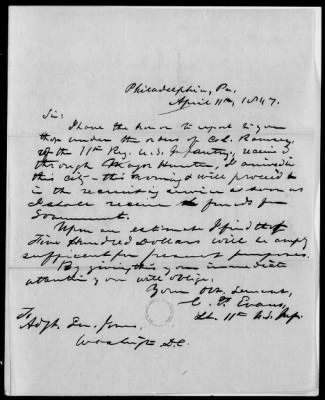 Philadelphia, Pa.
April 11th, 1847.
Sir:
I have the honor to report to you
that under the orders of Col. Ramsey,
of the 11th Reg. U.S. Infantry, received
through Major Hunter, I arrived in
this city this morning & will proceed
in the recruiting service as soon as
I shall receive the funds from
Government.
Upon an estimate I find that
Five Hundred Dollars will be amply
sufficient for present purposes.
By giving this your immediate
attention you will oblige,
Your Obt. Servant,
Evans,
Lt. 11th U.S. Inf.
To
Adjt. Gen. Jones,
Washington D.C.